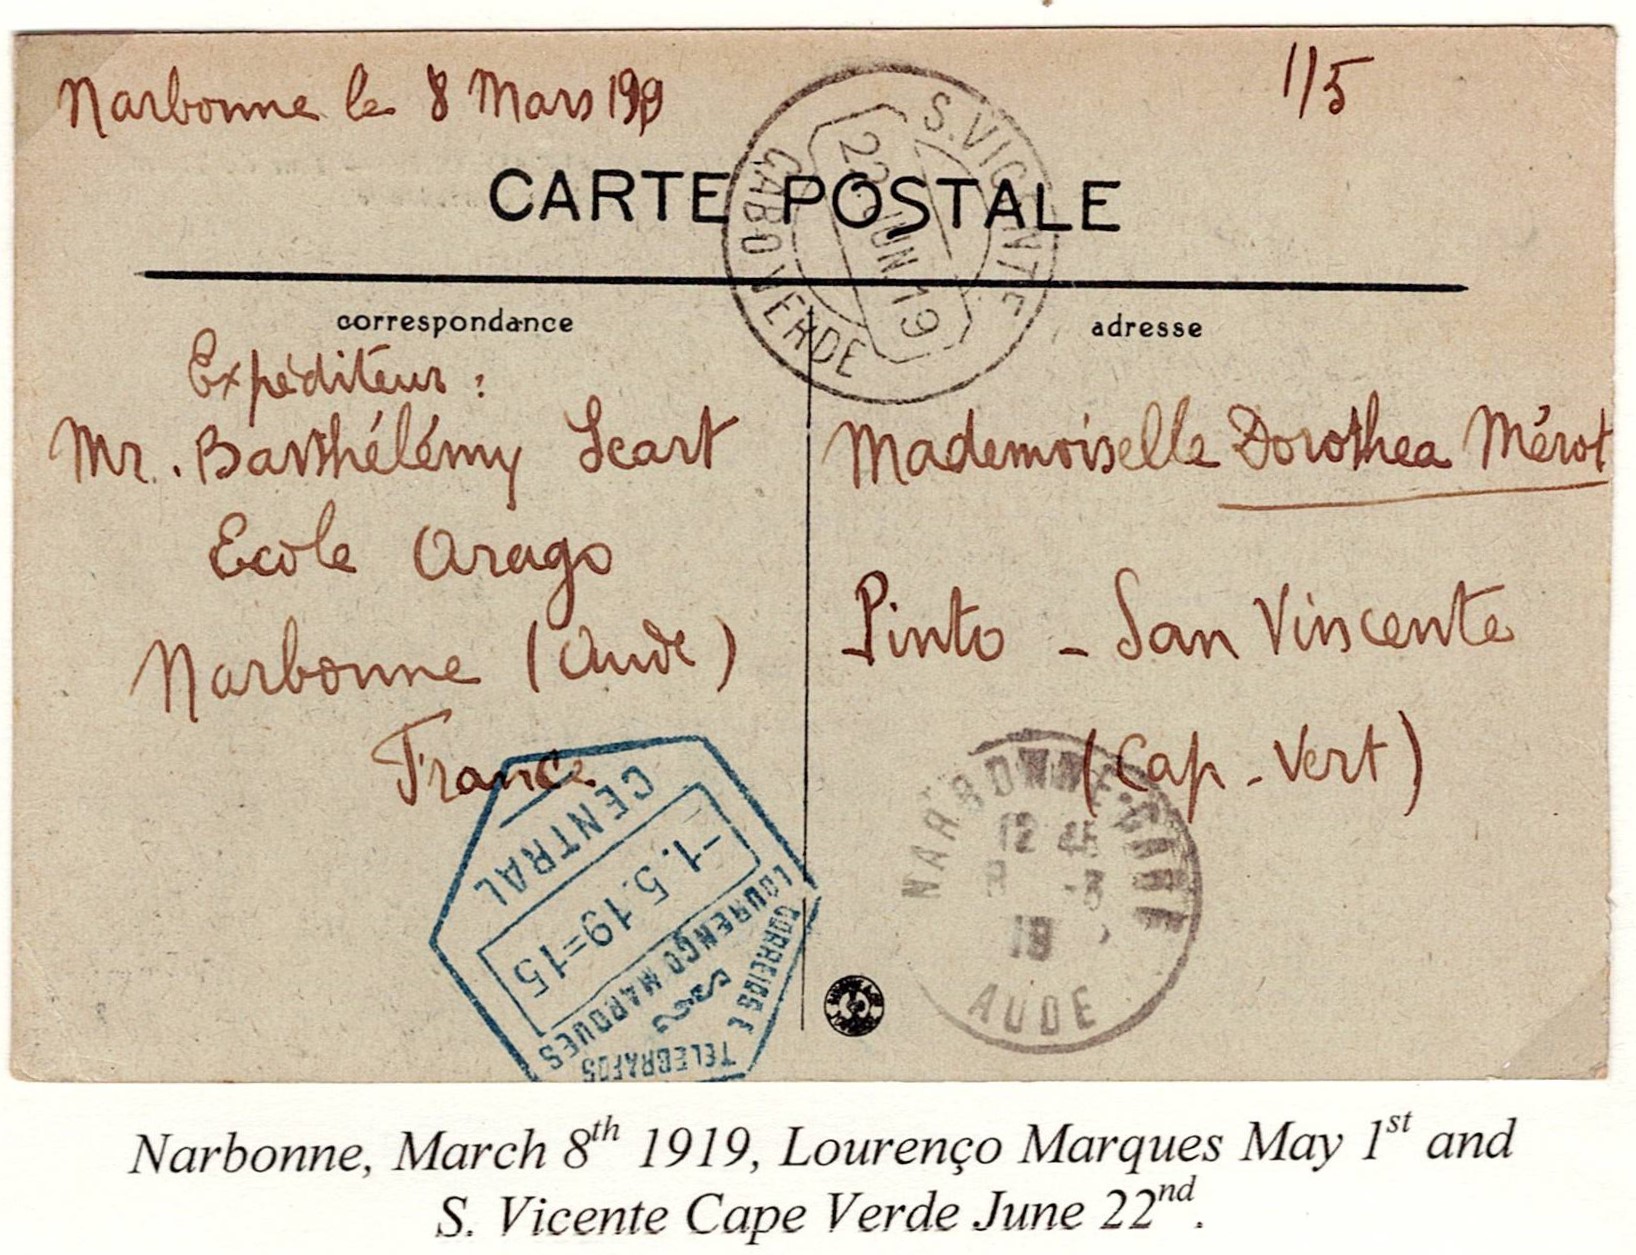 Narbonne le 8 Mars 1919
1/5
CARTE POSTALE
S. VICENTE
22 JUN. 19
CABO VERDE
correspondance
adresse
Expéditeur :
Mr. Barthélémy Scart
Ecole Arago
Narbonne (Aude)
France
Mademoiselle Dorothea Mérot
Pinto - San Vinscente
(Cap-Vert)
CENTRAL
-1.5.19=15
LOURENÇO MARQUES
CORREIOS E
TELEGRAFOS
NARBONNE-GARE
12 45
8 -3
19
AUDE
Narbonne, March 8th 1919, Lourenço Marques May 1st and
S. Vicente Cape Verde June 22nd.